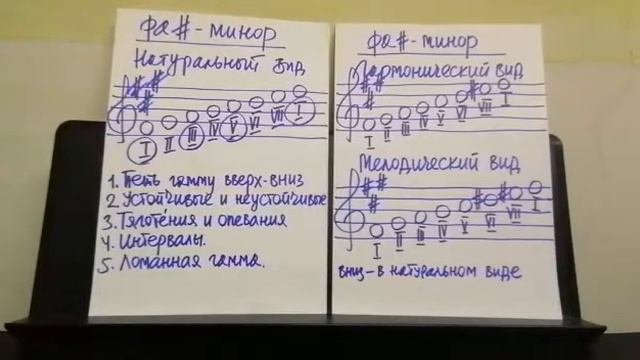 Фа#-минор
Натуральный вид
I II III IV V VI VII I
1. Петь гамму вверх-вниз
2. Устойчивые и неустойчивые
3. Тяготения и опевания
4. Интервалы.
5. Ломанная гамма.
Фа#-минор
Гармонический вид
I II III IV V VI VII I
Мелодический вид
I II III IV V VI VII I
вниз-в натуральном виде